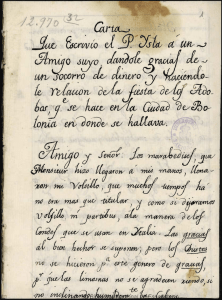 12.970 32
Carta
Que Escrivio el P. Ysla á un
Amigo suyo, dandole gracias de
un Socorro de dinero, y haciendo
le relacion de la fiesta de los Ado
bos, q.e se hace en la Ciudad de Bo
lonia en donde se hallava.
Amigo y Señor. Los marabedises, que
Monsieur hizo llegaron á mis manos, llena
ron mi Volsillo, que muchos tempos ha
no era mas que titular, y como si dijeramos
Volsillo in partibus, ála manera de los
Condes que se usan en Italia. Las gracias
al buen hechor se suponen, pero los
no se hicieron p.a este genero de gracias,